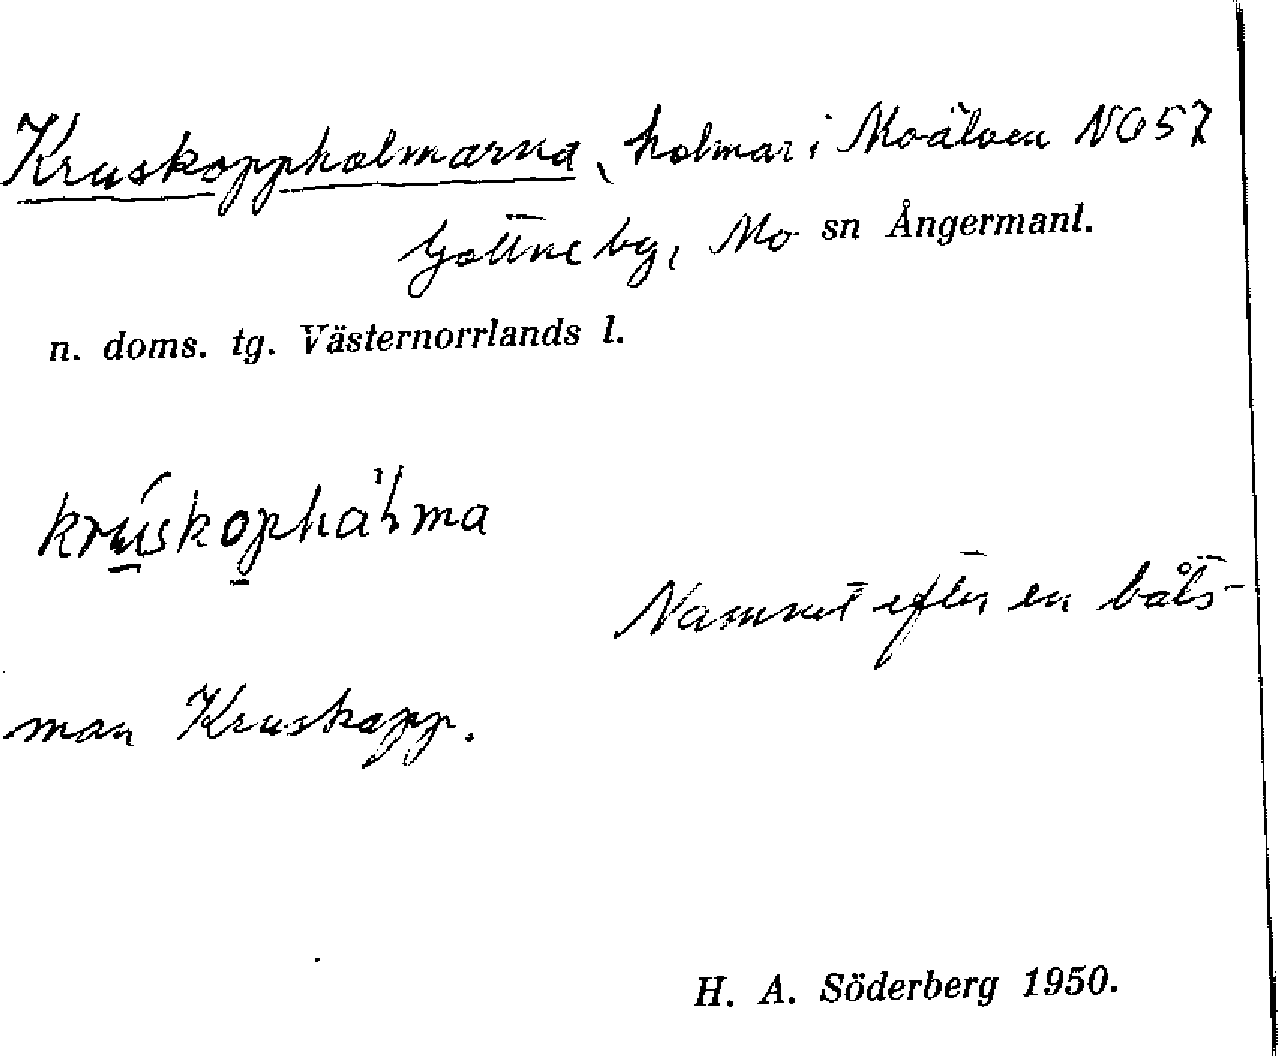 Kruskoppholmarna, holmar i Moälven NO 57
Gottne by, Mo sn Ångermanl.
n. doms. tg. Västernorrlands l.
Namnet efter en båts-
man Kruskopp.
H. A. Söderberg 1950.